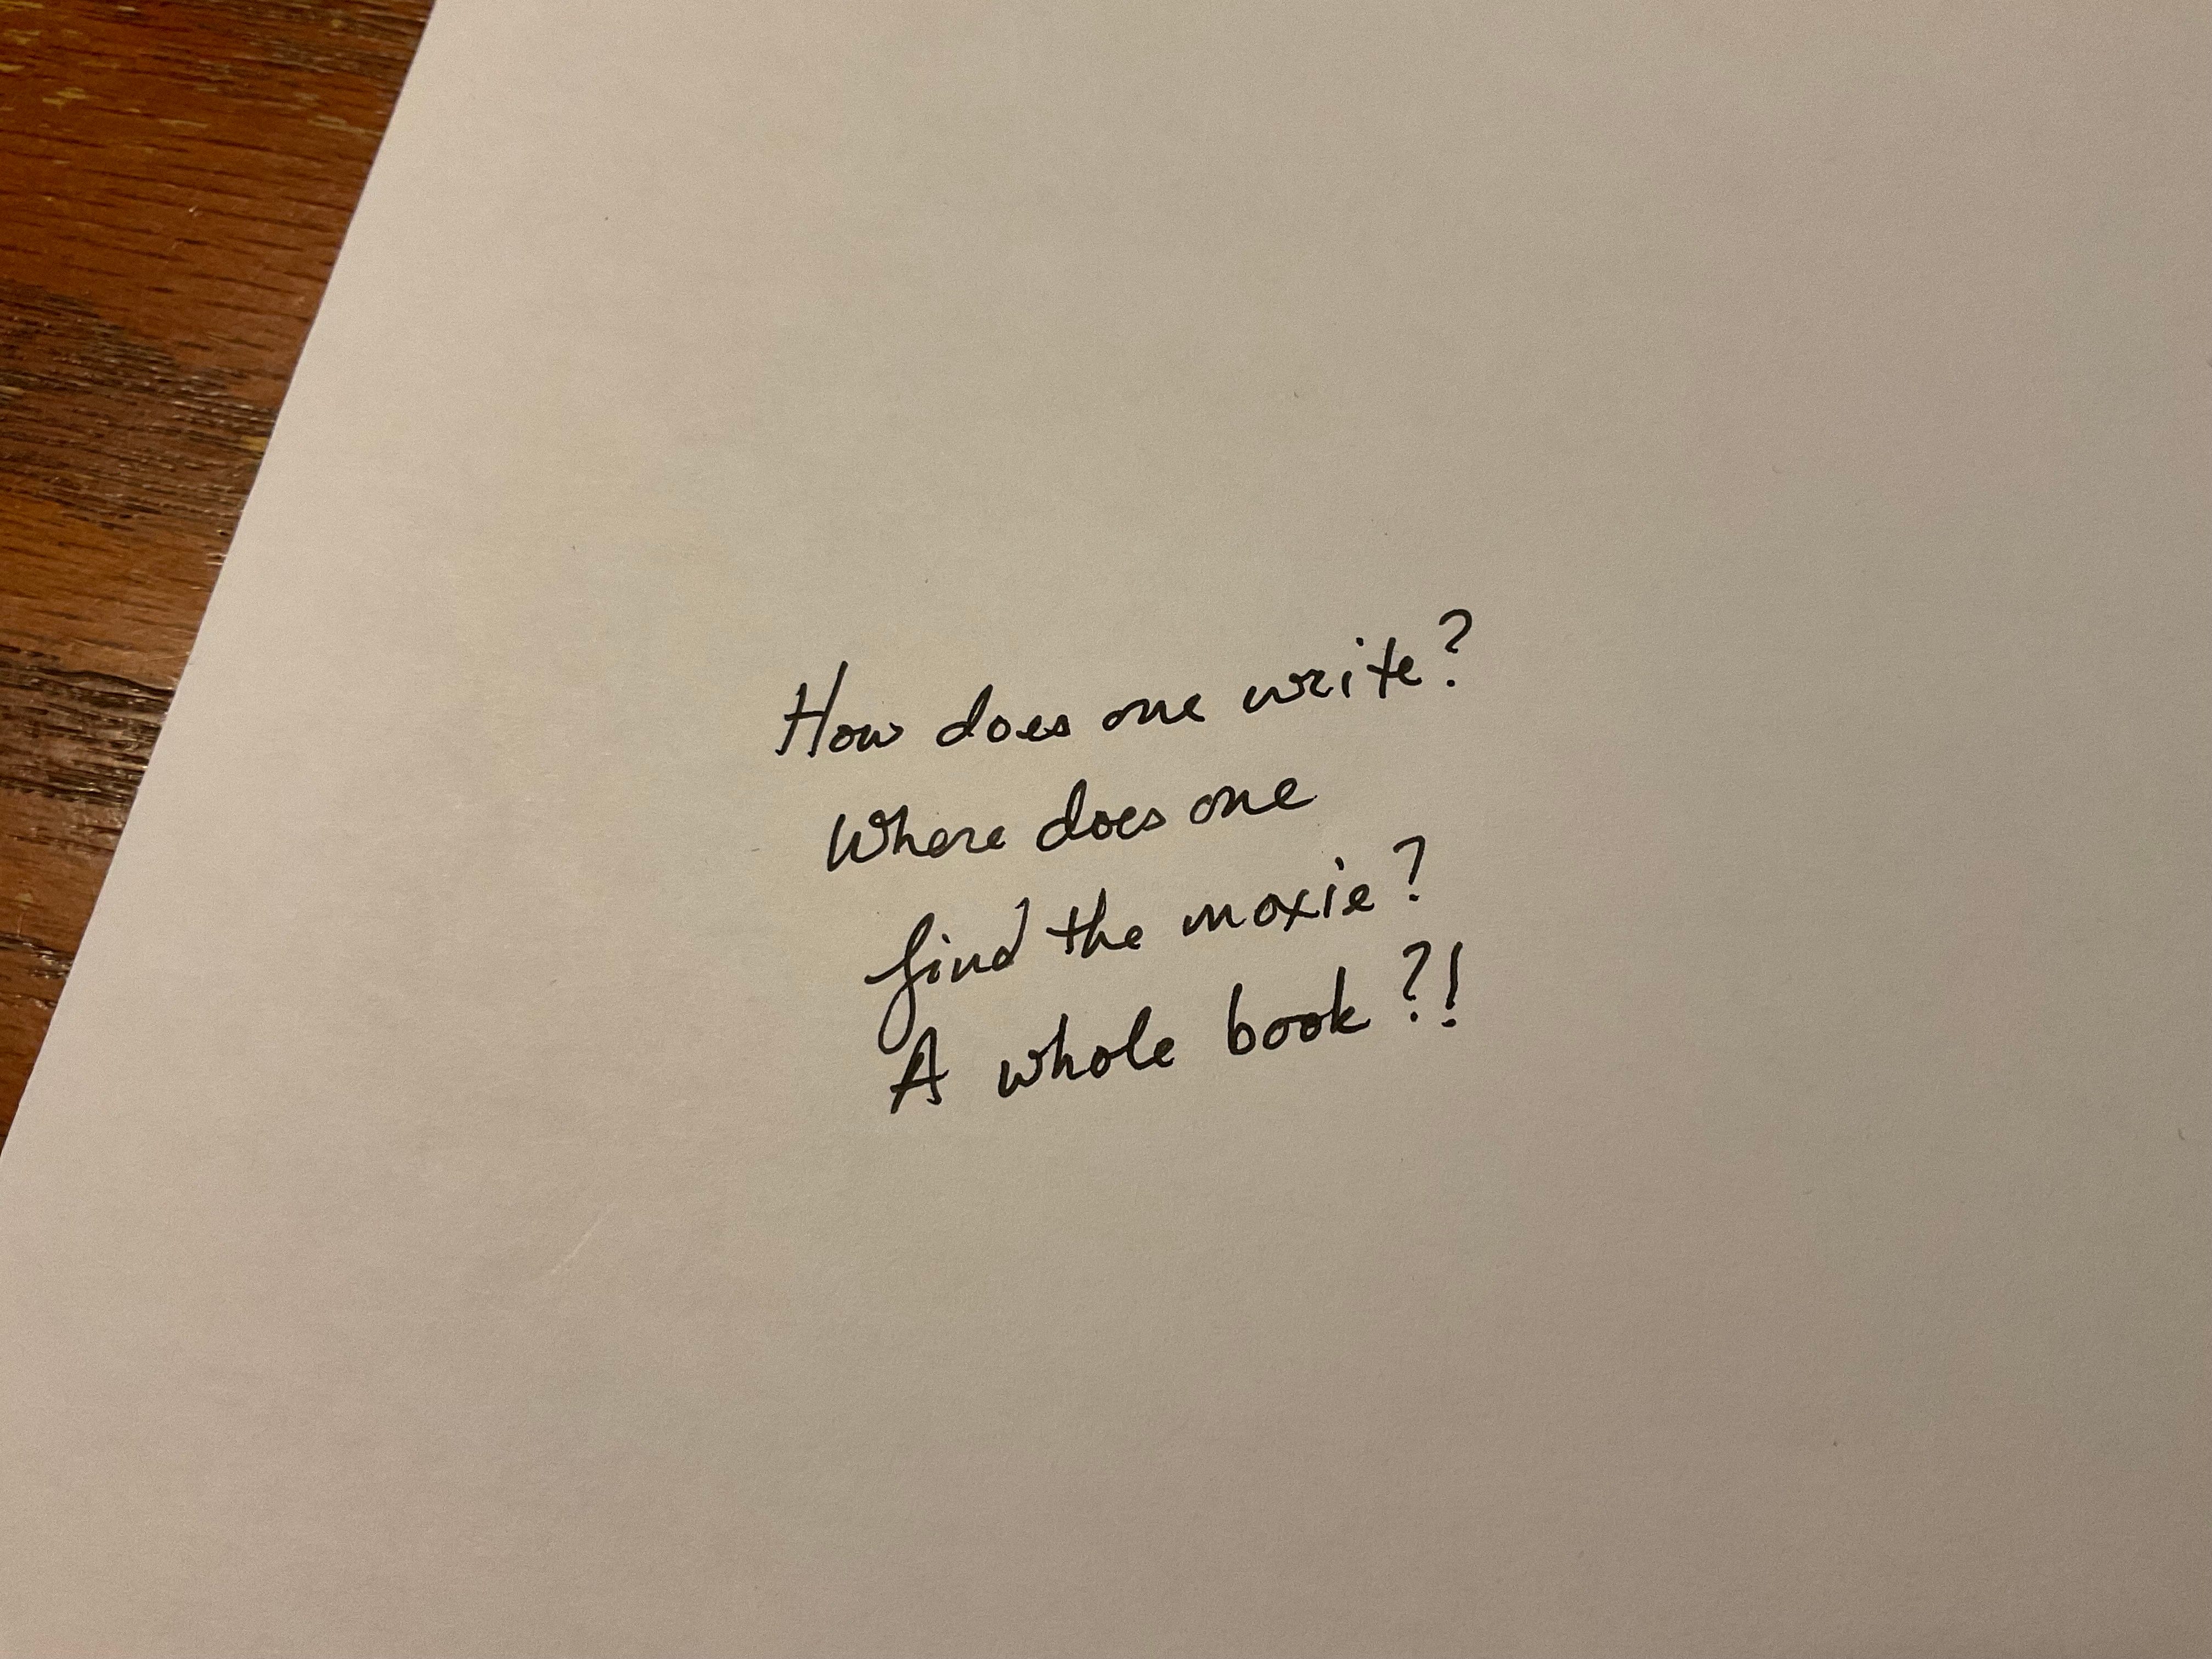 How does one write?
Where does one
find the moxie?
A whole book?!